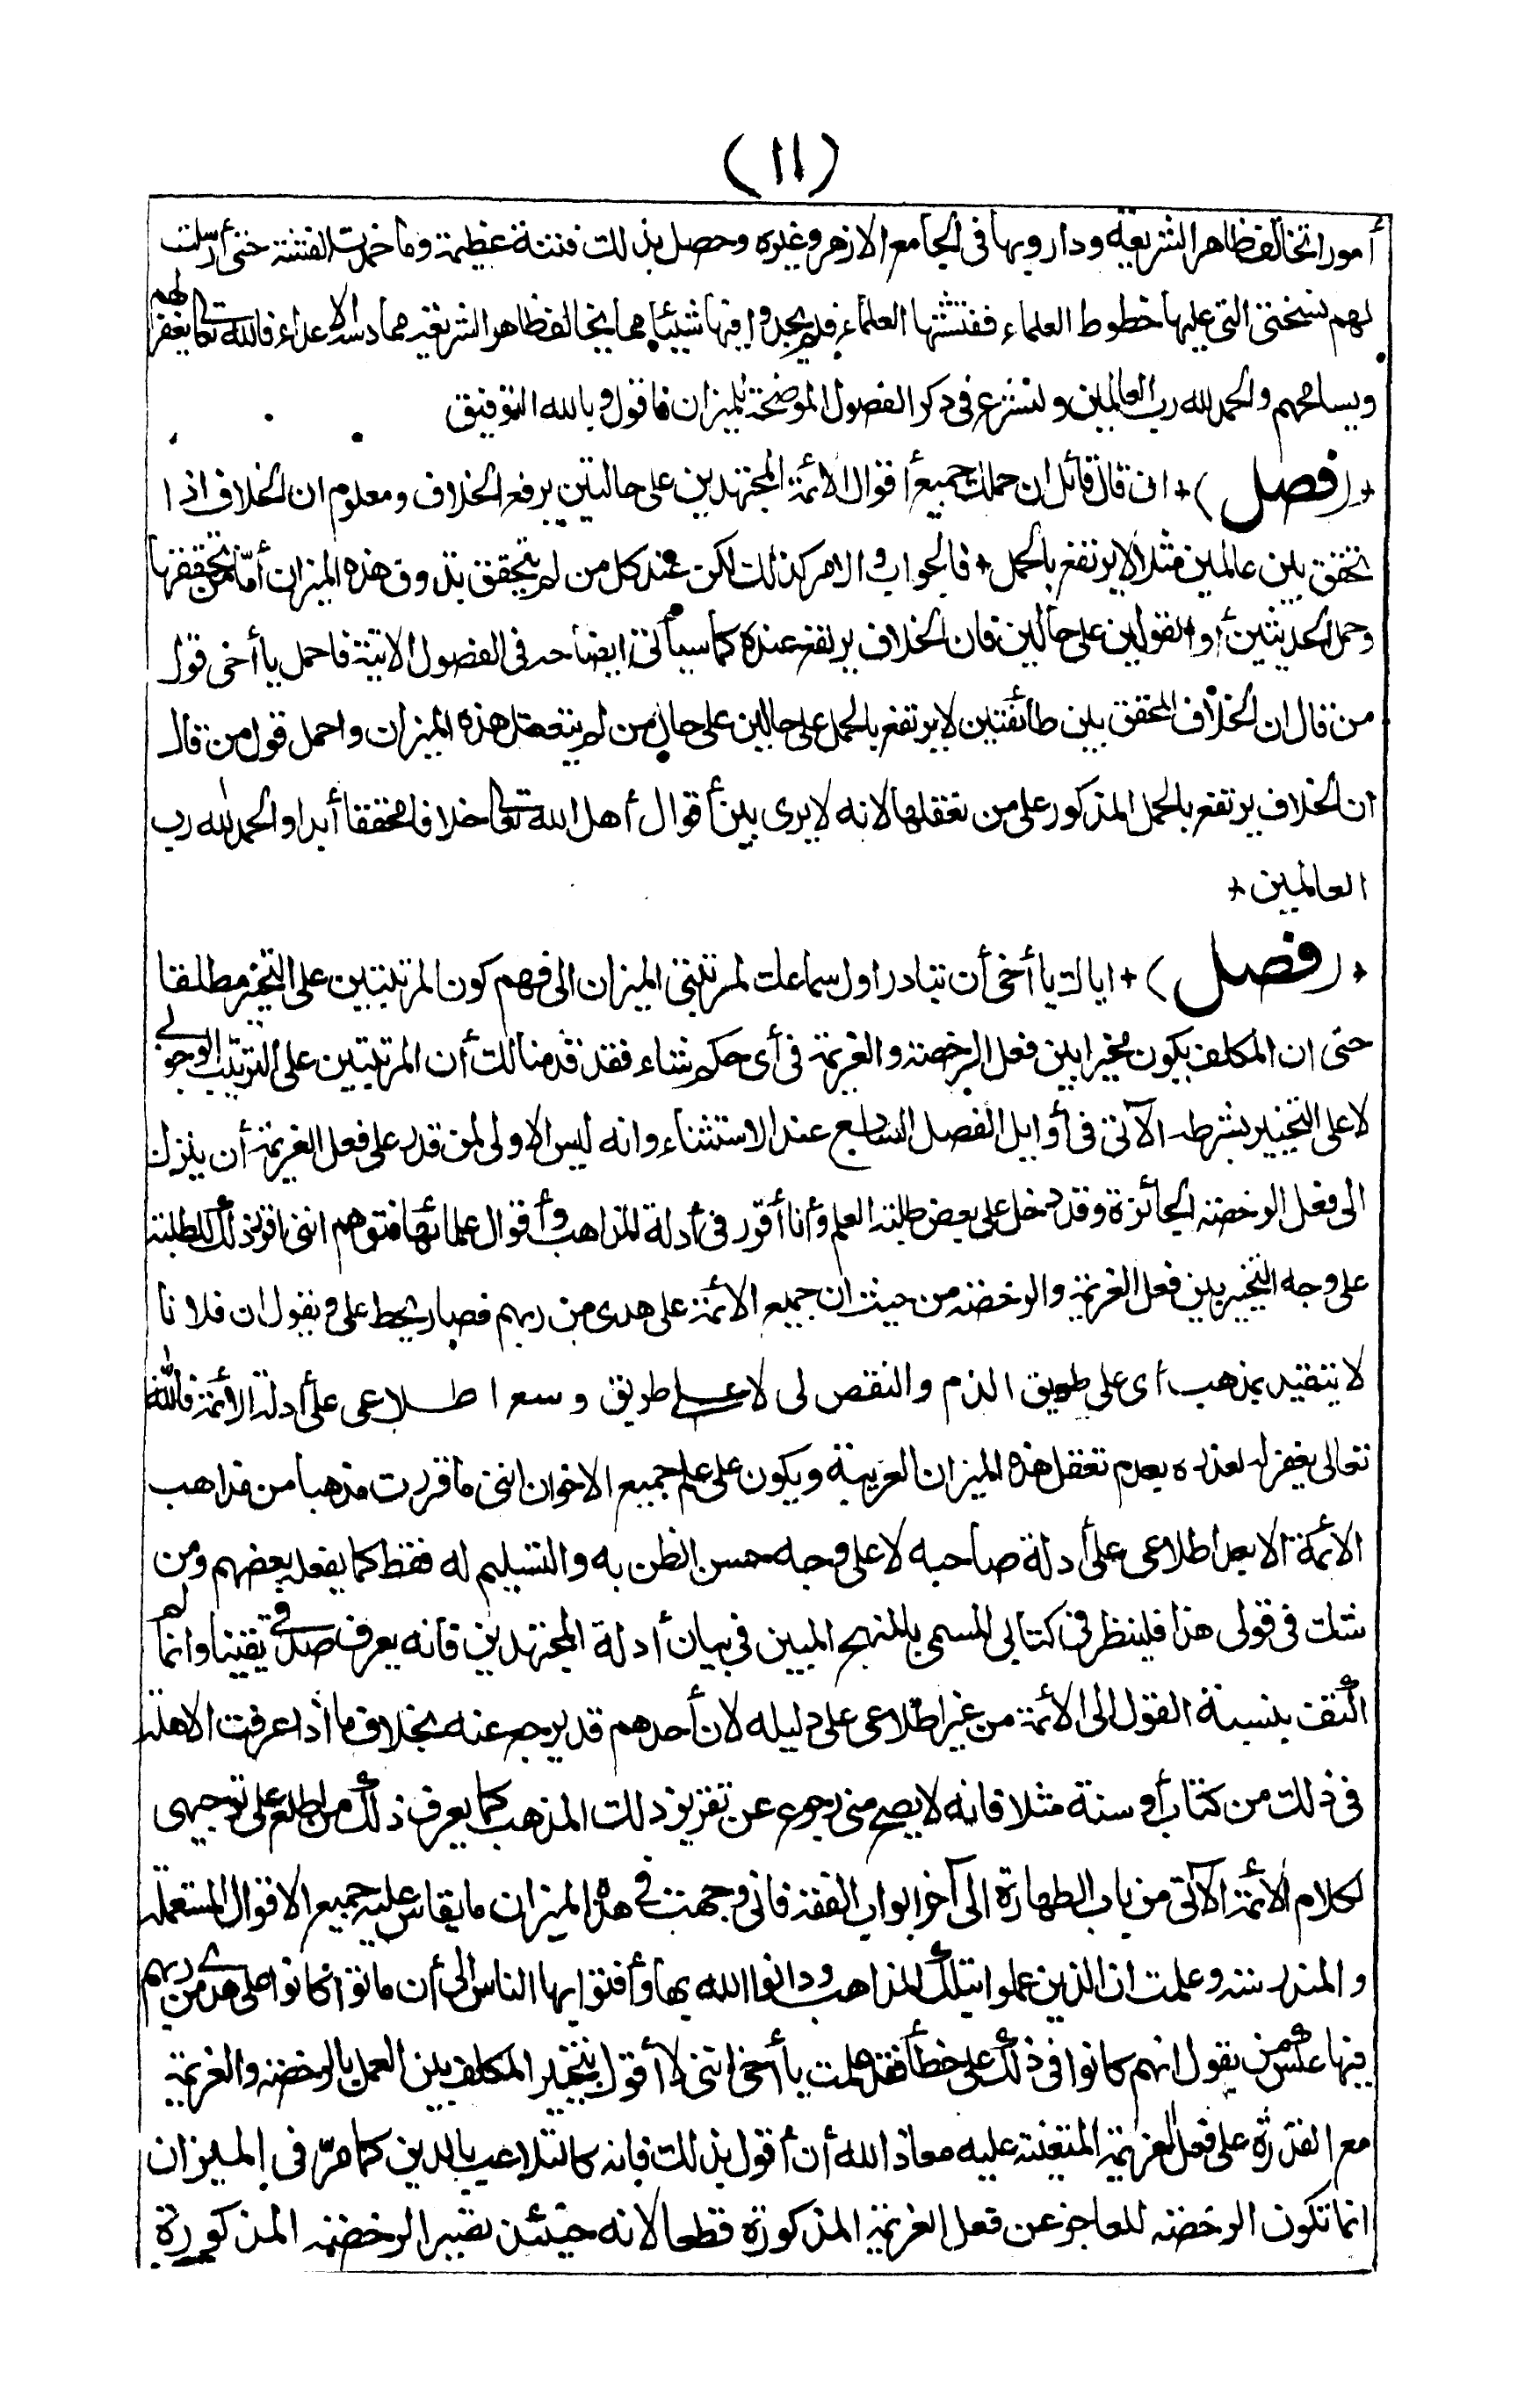 (١١)
أمورا تخالف ظاهر الشريعة وداروا بها فى الجامع الازهر وغيره وحصل بذلك فتنة عظيمة وما خمدت الفتنة حتى أرسلت
لهم نسختى التى عليها خطوط العلماء ففتشها العلماء فلم يجدوا فيها شيئا مما يخالف ظاهر الشريعة مما دسه الاعداء فالله تعالى يغفر لهم
ويسامحهم والحمد لله رب العالمين ولنشرع فى ذكر الفصول الموضحة للميزان فاقول وبالله التوفيق
* (فصل) * ان قال قائل ان حملك جميع أقوال الائمة المجتهدين على حالتين يرفع الخلاف ومعلوم ان الخلاف اذا
تحقق بين عالمين مثلا لا يرتفع بالحمل * فالجواب والامر كذلك لكن عند كل من لم يتحقق بذوق هذه الميزان أما من تحقق بها
وحمل الحديثين أو القولين على حالين فان الخلاف يرتفع عنده كما سيأتى ايضاحه فى الفصول الاتية فاحمل يا أخى قول
من قال ان الخلاف المحقق بين طائفتين لا يرتفع بالحمل على حالين على حال من لم يتعقل هذه الميزان واحمل قول من قال
ان الخلاف يرتفع بالحمل المذكور على من تعقلها لانه لا يرى بين أقوال أهل الله تعالى خلافا محققا أبدا والحمد لله رب
العالمين *
* (فصل) * اياك يا أخى أن تبادر أول سماعك لمرتبتى الميزان الى فهم كون المرتبتين على التخيير مطلقا
حتى ان المكلف يكون مخيرا بين فعل الرخصة والعزيمة فى أى حكم شاء فقد قدمنا لك أن المرتبتين على الترتيب الوجوبى
لا على التخيير بشرطه الآتى فى أوايل الفصل السابع عند الاستثناء وانه ليس الاولى لمن قدر على فعل العزيمة أن ينزل
الى فعل الرخصة الجائزة وقد دخل على بعض طلبة العلم وأنا أقرر فى أدلة المذاهب وأقوال علمائها فتوهم اننى اقرر ذلك للطلبة
على وجه التخيير بين فعل العزيمة والرخصة من حيث ان جميع الائمة على هدى من ربهم فصار يحط على ويقول ان فلانا
لا يتقيد بمذهب أى على طريق الذم والنقص لى لا على طريق وسع اطلاعى على أدلة الائمة فالله
تعالى يغفر له لعذره بعدم تعقل هذه الميزان الغريبة ويكون على علم جميع الاخوان اننى ما قررت مذهبا من مذاهب
الائمة الا بعد اطلاعى على أدلة صاحبه لا على وجه حسن الظن به والتسليم له فقط كما يفعله بعضهم ومن
شك فى قولى هذا فلينظر فى كتابى المسمى بالمنهج المبين فى بيان أدلة المجتهدين فانه يعرف صدقى يقينا وانما لم
اكتف بنسبة القول الى الائمة من غير اطلاعى على دليله لان أحدهم قد يرجع عنه بخلاف ما اذا عرفت الادلة
فى ذلك من كتاب أو سنة مثلا فانه لا يصح منى رجوع عن تقرير ذلك المذهب كما يعرف ذلك من اطلع على توجيهى
لكلام الائمة الآتى من باب الطهارة الى آخر ابواب الفقه فانى وجهت فى هذا الميزان ما يقاس عليه جميع الاقوال المستعملة
والمندرسة وعلمت ان الذين عملوا بتلك المذاهب ودانوا الله بها وأفتوا بها الناس الى أن ماتوا كانوا على هدى من ربهم
فيها عكس من يقول انهم كانوا فى ذلك على خطأ فقد علمت يا أخى اننى لا أقول بتخيير المكلف بين العمل بالرخصة والعزيمة
مع القدرة على فعل العزيمة المتعينة عليه معاذ الله أن أقول بذلك فانه كالتلاعب بالدين كما مر فى الميزان
انما تكون الرخصة للعاجز عن فعل العزيمة المذكورة قطعا لانه حينئذ تصير الرخصة المذكورة